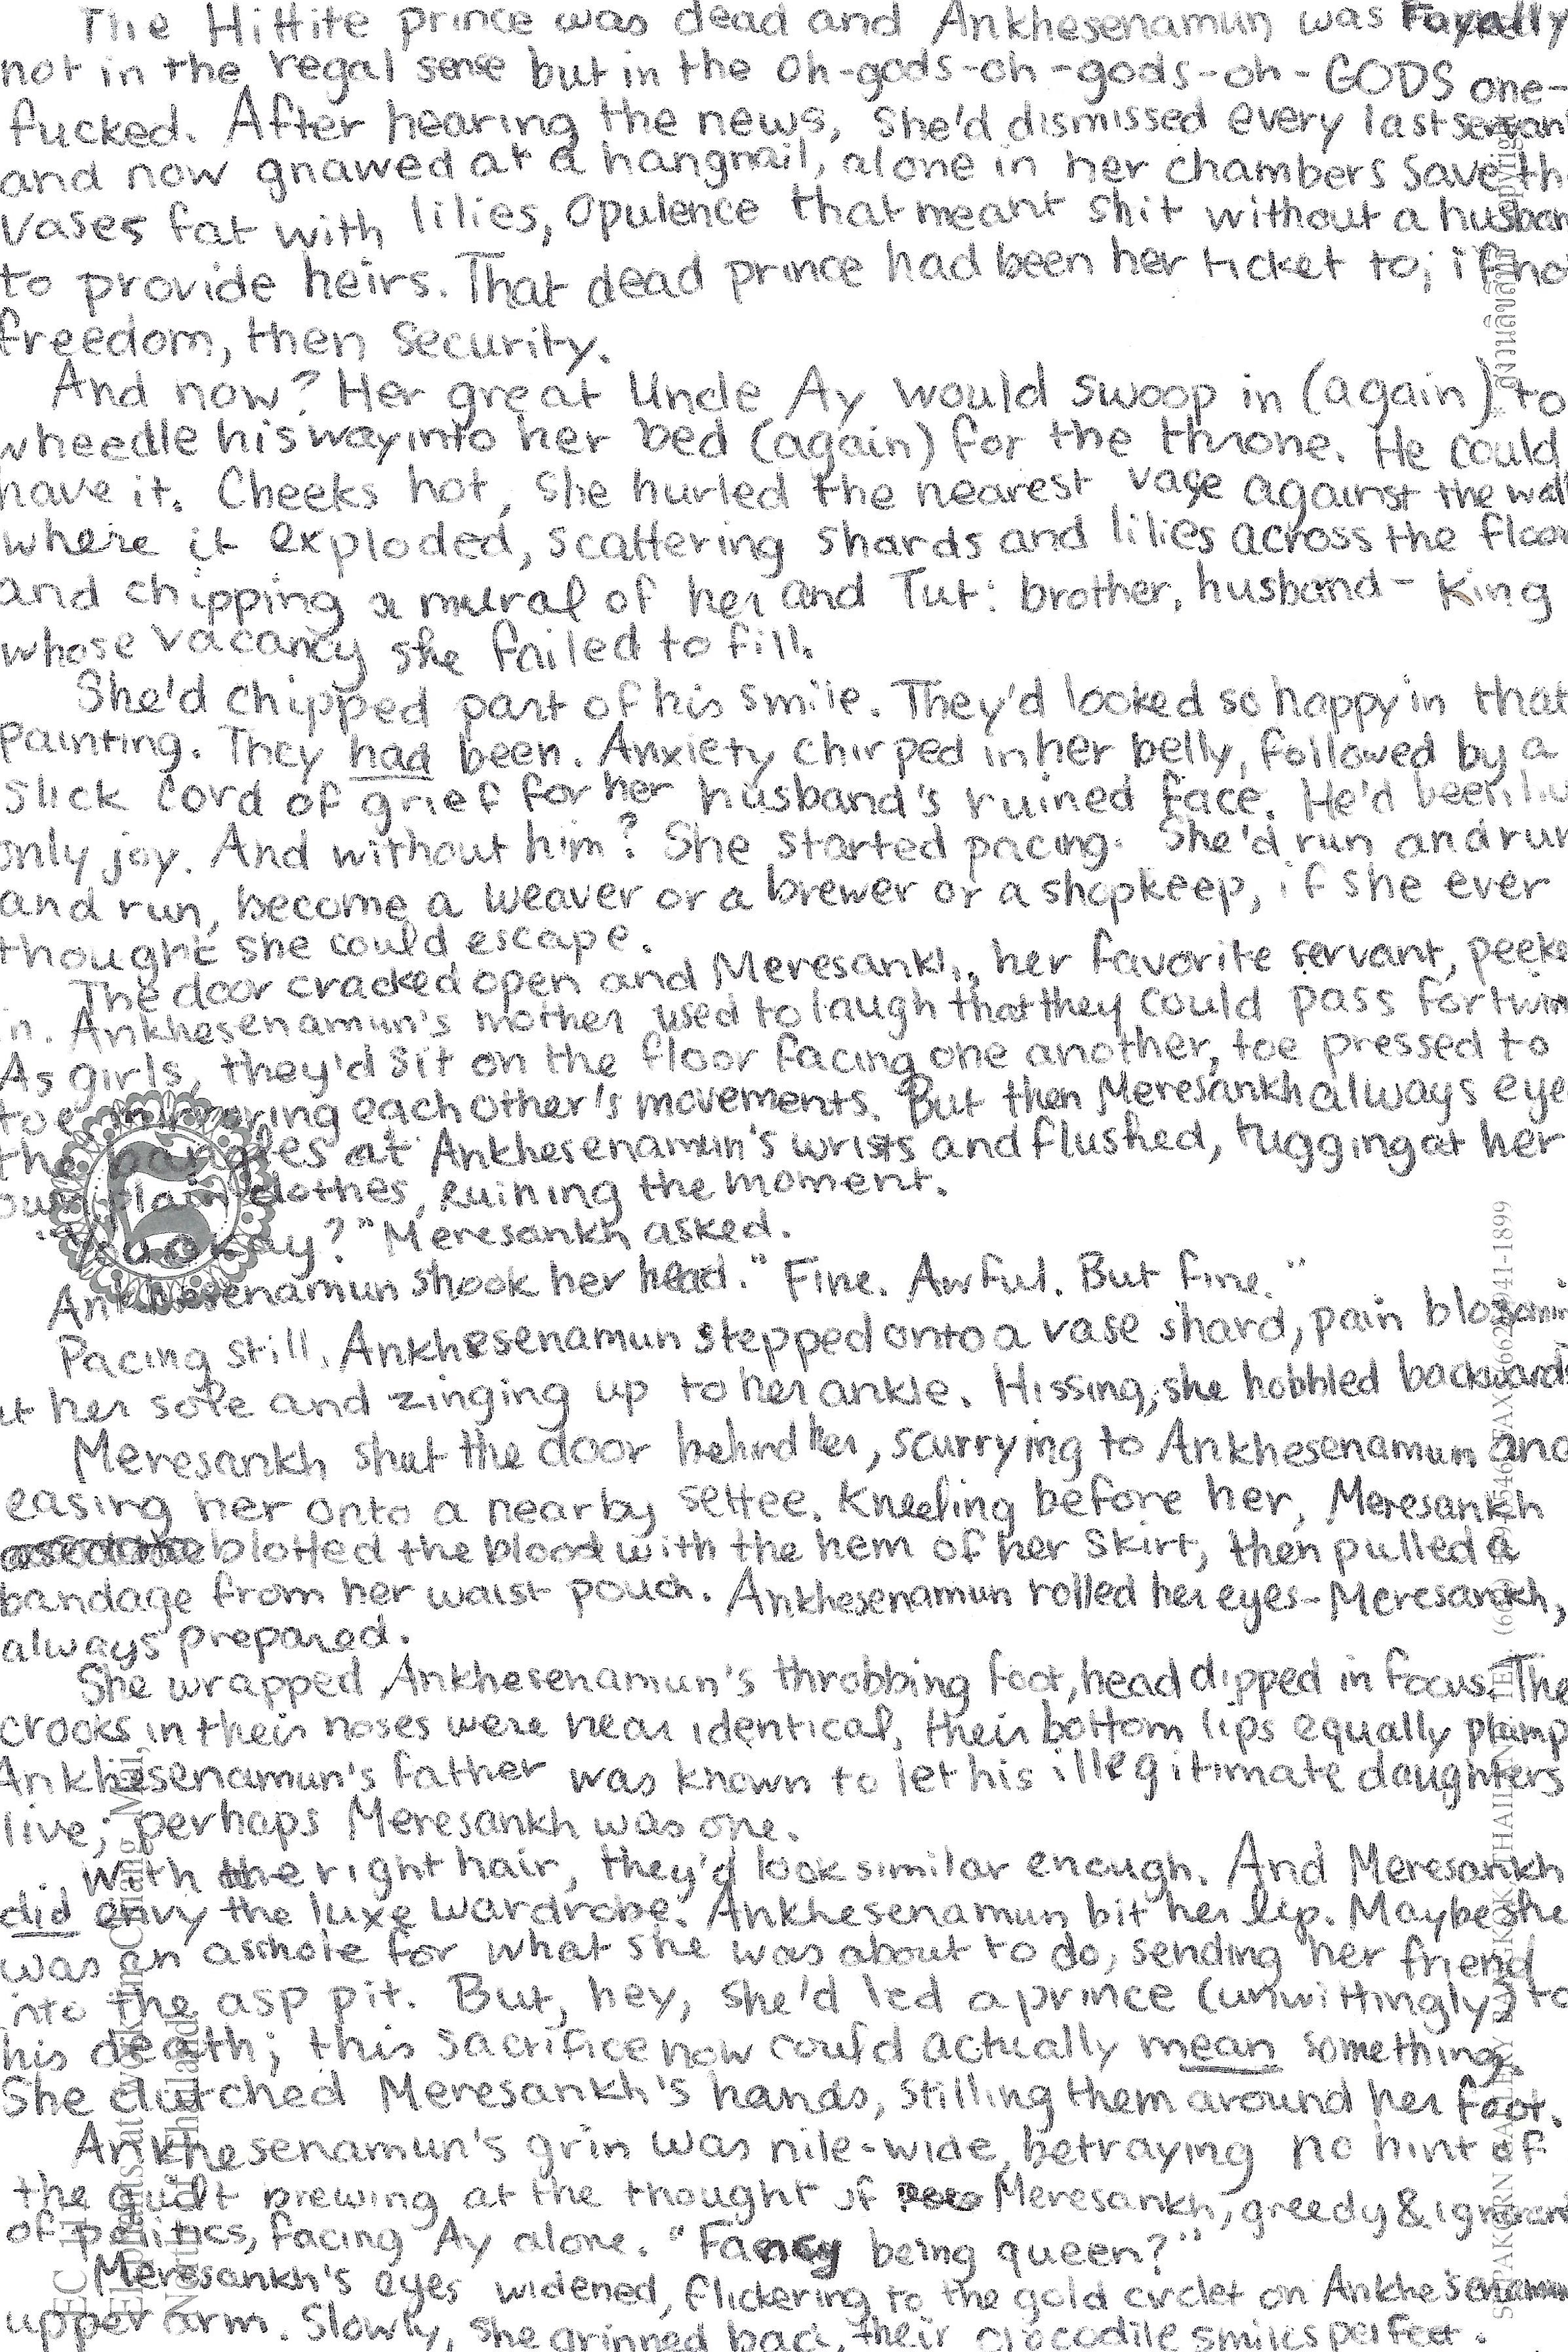 The Hittite prince was dead and Ankhesenamun was royally
not in the regal sense but in the oh-gods-oh-gods-oh-GODS one-
fucked. After hearing the news, she'd dismissed every last servan
and now gnawed at a hangnail, alone in her chambers save th
vases fat with lilies, opulence that meant shit without a husban
to provide heirs. That dead prince had been her ticket to, if no
freedom, then security.
And now? Her great Uncle Ay would swoop in (again) to
wheedle his way into her bed (again) for the throne. He could
have it. Cheeks hot, she hurled the nearest vase against the wall
where it exploded, scattering shards and lilies across the floor
and chipping a mural of her and Tut: brother, husband - King
whose vacancy she failed to fill.
She'd chipped part of his smile. They'd looked so happy in that
painting. They had been. Anxiety chirped in her belly, followed by a
slick cord of grief for her husband's ruined face. He'd been
only joy. And without him? She started pacing. She'd run and run
and run, become a weaver or a brewer or a shopkeep, if she ever
thought she could escape.
The door cracked open and Meresankh, her favorite servant, peeke
in. Ankhesenamun's mother used to laugh that they could pass for twin
As girls, they'd sit on the floor facing one another, toe pressed to
toe mirroring each other's movements. But then Meresankh always eye
the bangles at Ankhesenamun's wrists and flushed, tugging at her
own plain clothes, ruining the moment.
"You okay?" Meresankh asked.
Ankhesenamun shook her head. "Fine. Awful. But fine."
Pacing still, Ankhesenamun stepped onto a vase shard, pain blossomin
at her sole and zinging up to her ankle. Hissing, she hobbled backwards
Meresankh shut the door behind her, scurrying to Ankhesenamun and
easing her onto a nearby settee. Kneeling before her, Meresankh
blotted the blood with the hem of her skirt, then pulled a
bandage from her waist pouch. Ankhesenamun rolled her eyes - Meresankh,
always prepared.
She wrapped Ankhesenamun's throbbing foot, head dipped in focus. The
crooks in their noses were near identical, their bottom lips equally plump
Ankhesenamun's father was known to let his illegitimate daughters
live; perhaps Meresankh was one.
With the right hair, they'd look similar enough. And Meresankh
did envy the luxe wardrobe. Ankhesenamun bit her lip. Maybe she
was an asshole for what she was about to do, sending her friend
into the asp pit. But, hey, she'd led a prince (unwittingly) to
his death; this sacrifice now could actually mean something.
She clutched Meresankh's hands, stilling them around her foot.
Ankhesenamun's grin was nile-wide, betraying no hint of
the guilt brewing at the thought of Meresankh, greedy & ignorant
of politics, facing Ay alone. "Fancy being queen?"
Meresankh's eyes widened, flickering to the gold circlet on Ankhesenamun
upper arm. Slowly, she grinned back, their crocodile smiles perfect.